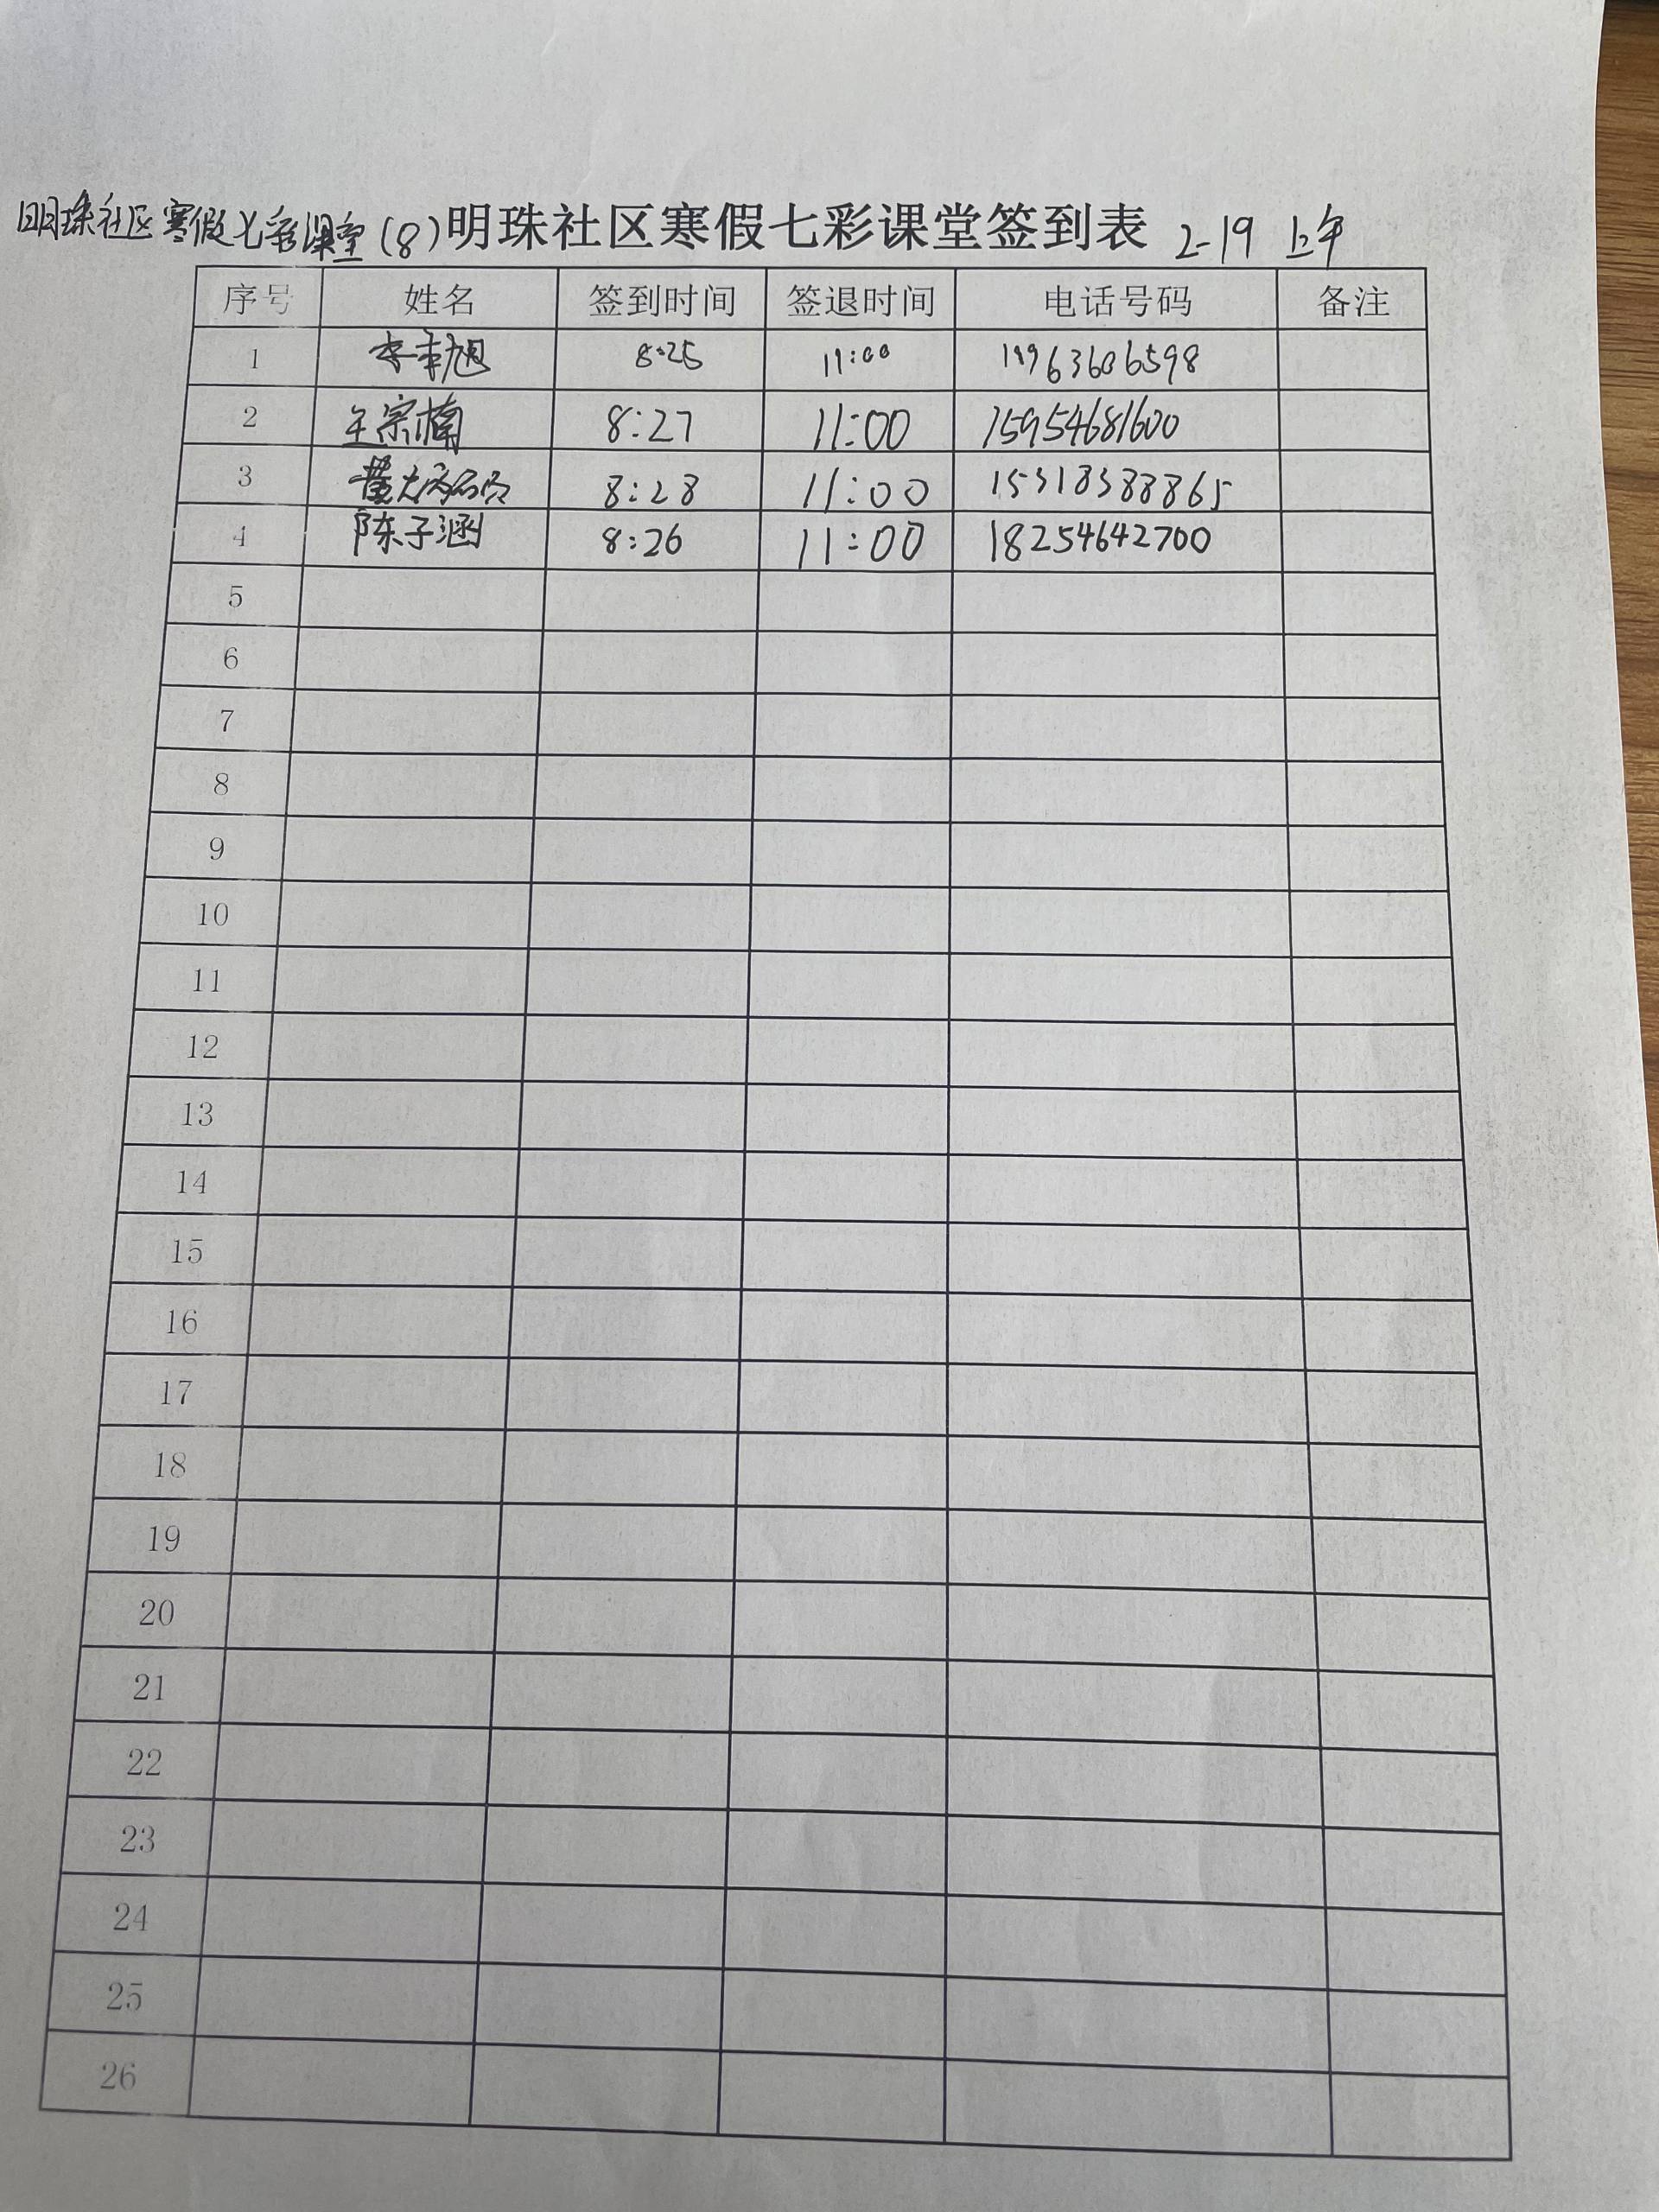 明珠社区寒假七彩课堂(8) 明珠社区寒假七彩课堂签到表 2-19 上午
序号 姓名 签到时间 签退时间 电话号码 备注
1 8:25 11:00 19963606598
2 王宗楠 8:27 11:00 15954681600
3 8:28 11:00 15318388865
4 陈子涵 8:26 11:00 18254642700
5
6
7
8
9
10
11
12
13
14
15
16
17
18
19
20
21
22
23
24
25
26